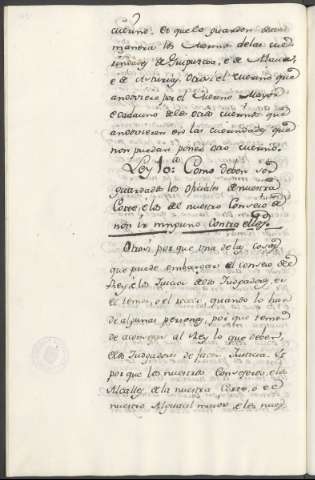 cuerno. Et que lo guarden desta
manera los Avemos de las cue
de Guipuzcoa, e de Alava, e
e de Asturias, Otrosi el cuerno que
anduviere por el cuerno Mayor
e cadauno delos otros cuernos que
anduvieren en las cuerndades que
non puedan poner otro cuerno.
Ley 10ª: Como deben ser
guardados los oficiales de nuestra
Corte, e los del nuestro Consejo, e
non ir ninguno contra ellos.
Otrosi por que una de las cosas
que puede embargar el consejo del
Rey, e los Juicios delos Judgadores, es
el temor, e el recelo, quando lo han
de algunas personas, por que temen
de aconsejar al Rey lo que deben,
e los Judgadores de facer Justicia. Es
por que los nuestros Consejeros, e los
Alcalles de la nuestra Corte, o e el
nuestro Alguacil mayor, e los nues